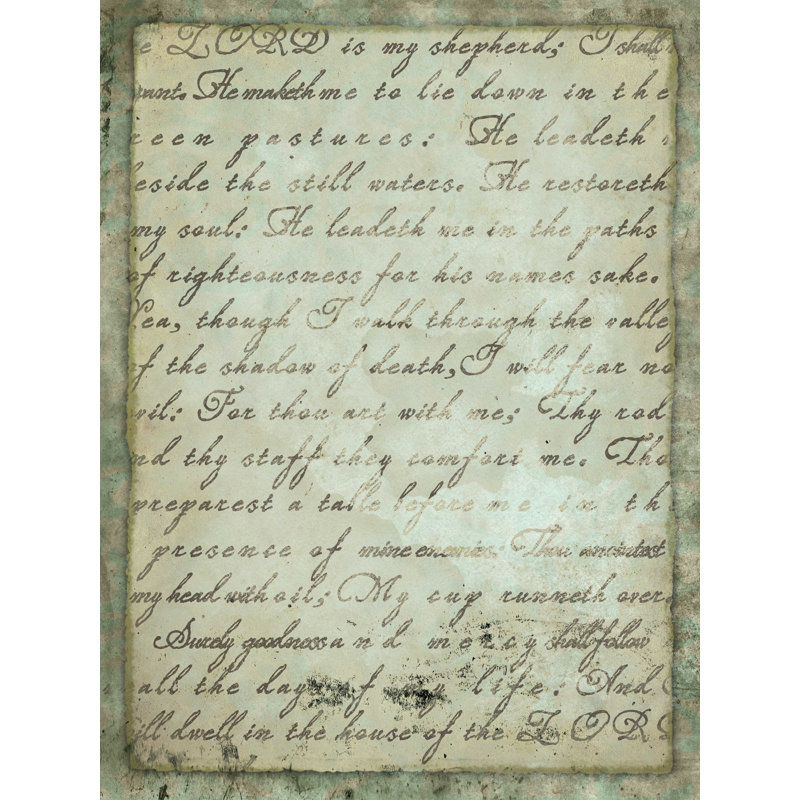 e LORD is my shepherd; I shall
want. He maketh me to lie down in the
reen pastures: He leadeth
eside the still waters. He restoreth
my soul: He leadeth me in the paths
of righteousness for his names sake.
Yea, though I walk through the valley
of the shadow of death, I will fear no
vil: For thou art with me; Thy rod
nd thy staff they comfort me. Tho
preparest a table before me in the
presence of mine enemies: Thou anointest
my head with oil; My cup runneth over.
Surely goodness and mercy shall follow
all the days of my life: And
ill dwell in the house of the LORD